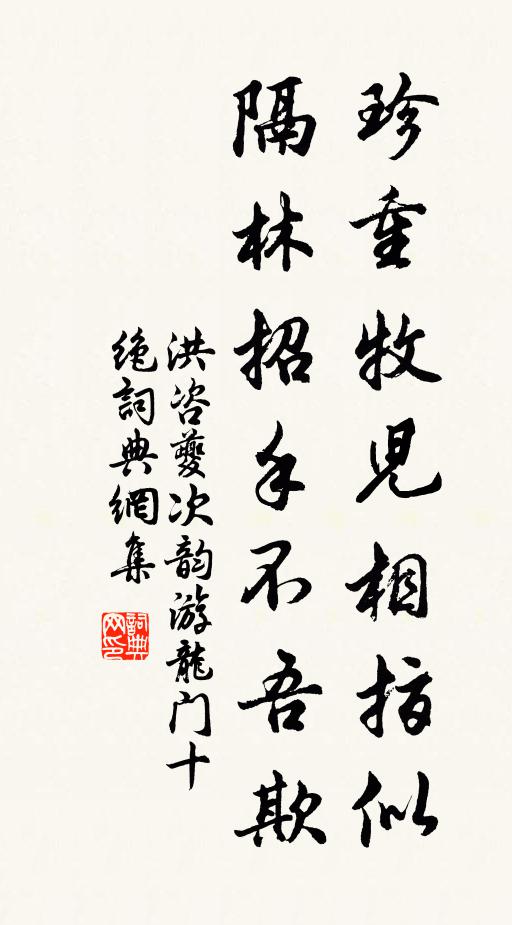 珍重牧兒相指似
隔林招手不吾欺
洪咨夔次韵游龍门十
絶詞典網集
詞典网印